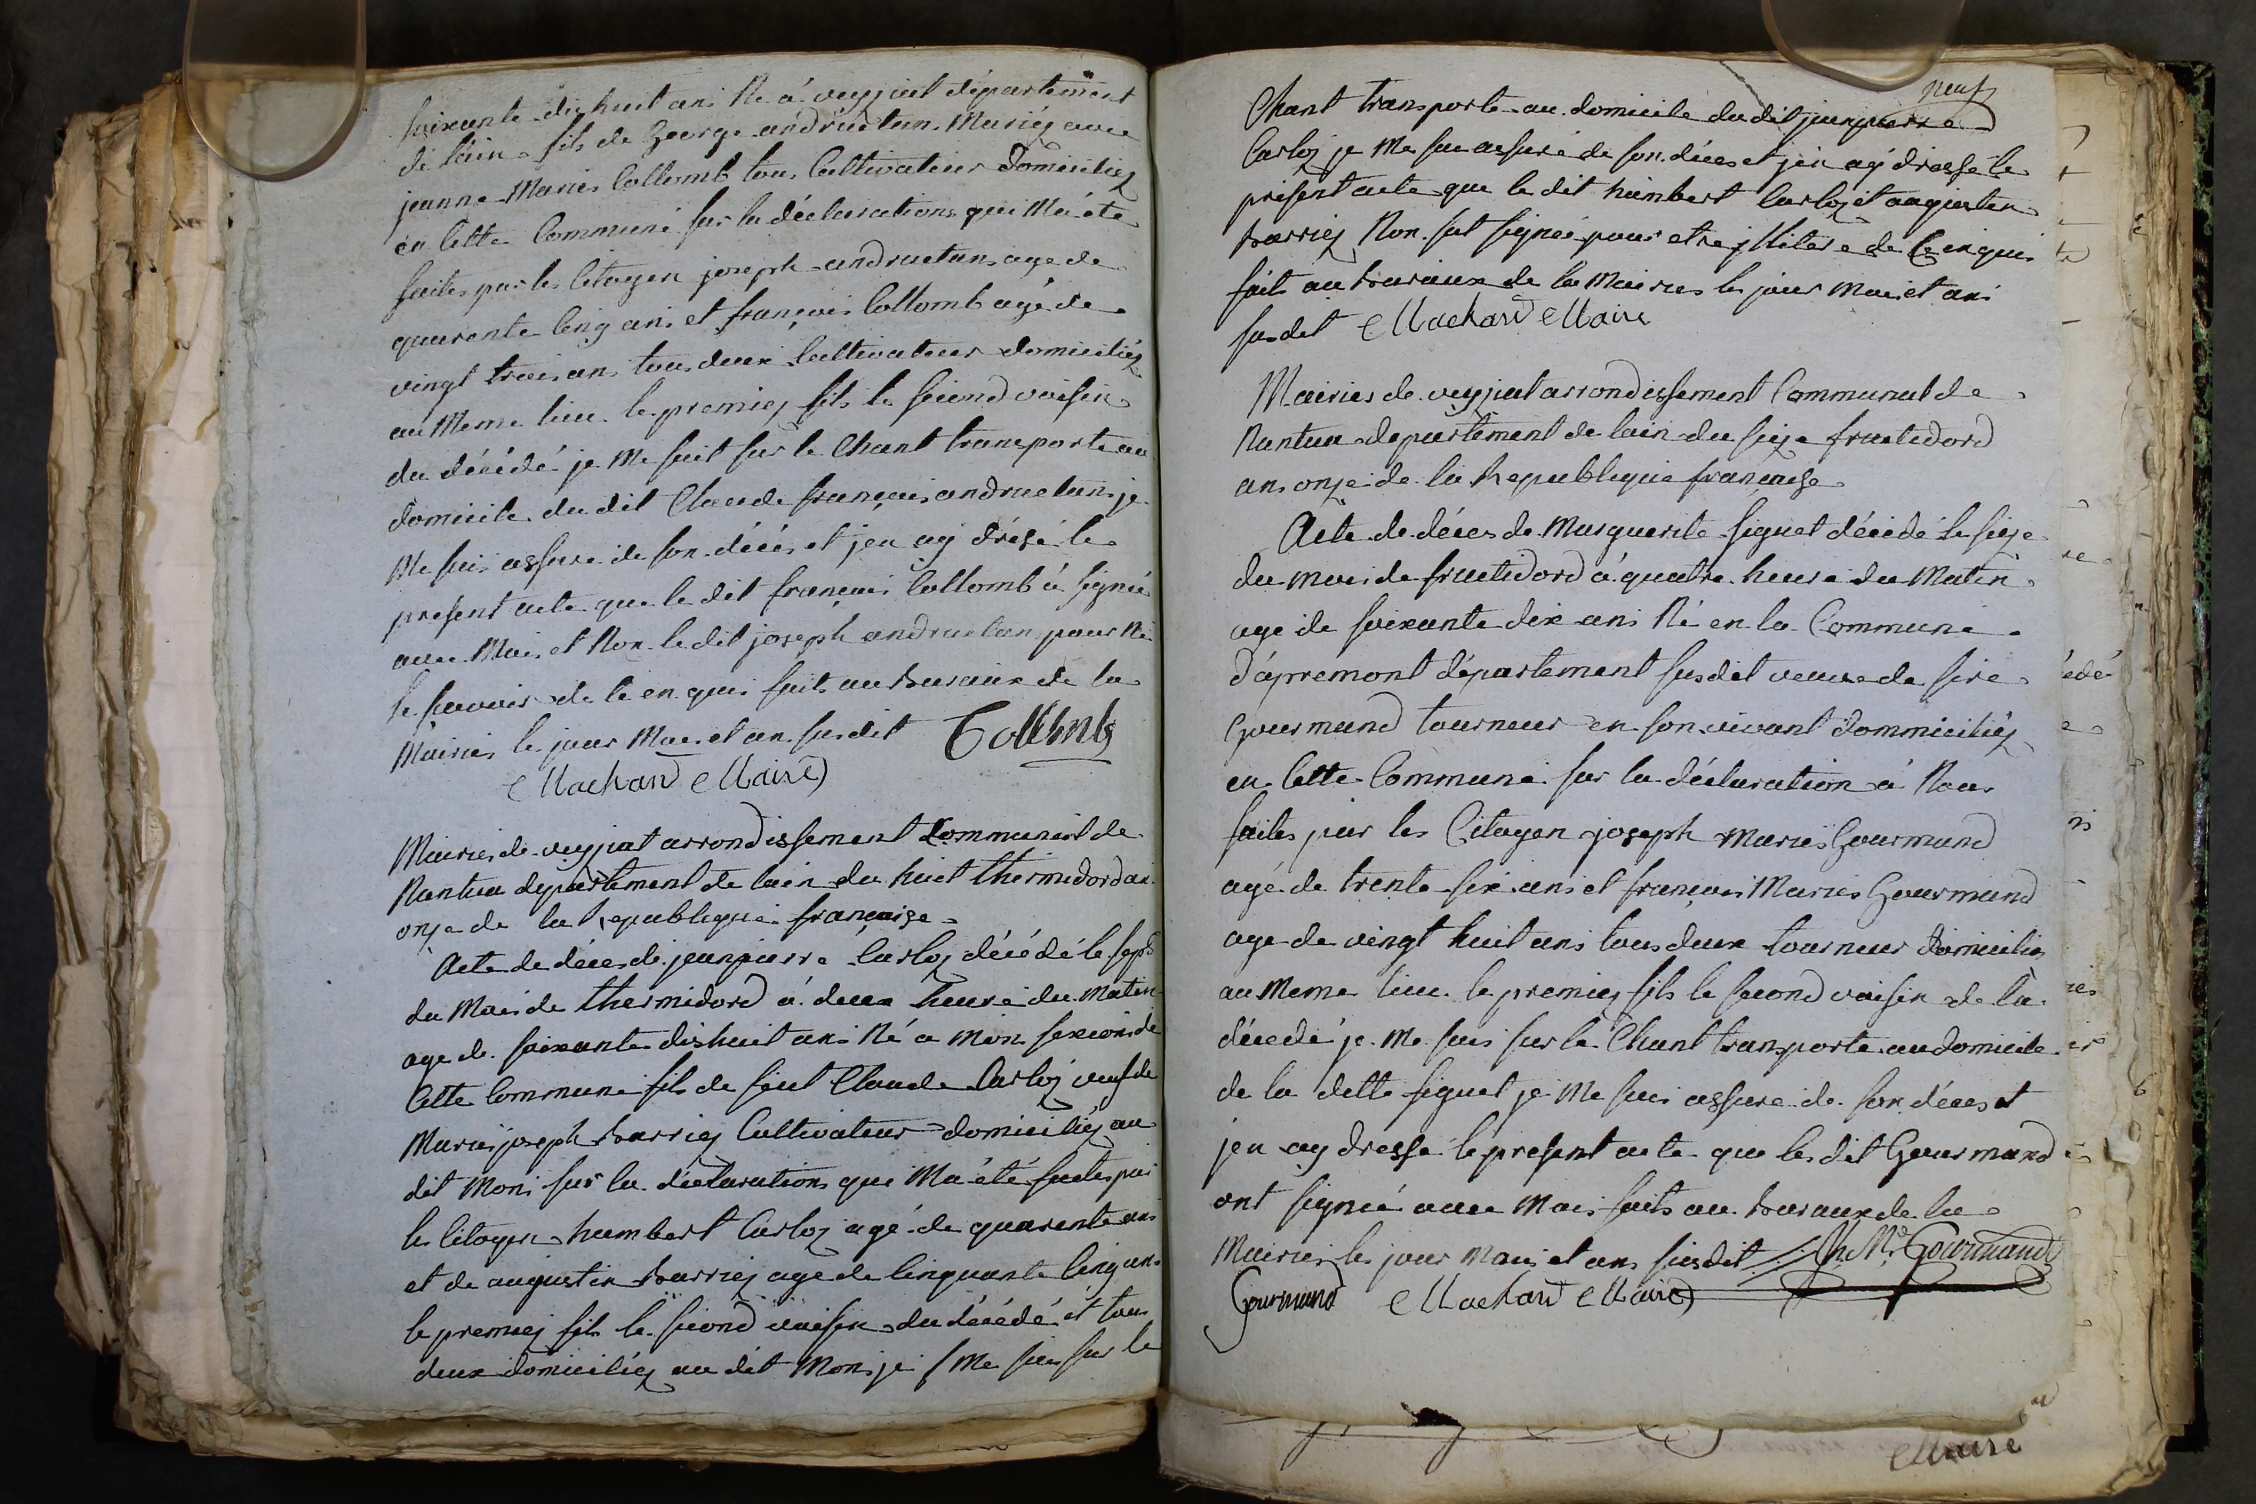 soixante dix huit ans Né á veyziat départemènt
de lain fils de George andructun Mariéz avec
jeanne Maries Collomb tous Cultivateur domiciliéz
en Cette Communé sur la déclarations qui Má été
faites par les Citoyen joseph andructuns agé de
quarente Cinq ans et françois Collomb agé de
vingt trois ans tous deux Cultivateur domiciliéz
au Meme lieu le premiez fils le second voisin
du décédé je Me suit sur le Chant transporte au
domicile du dit Claude françois andructuns je
Me suis assure de son décés et jen ay drésé le
présent acte que le dit françois Collomb á signié
avec Moi et Non le dit joseph andructun pour Ne
le savoir de ce en quis faits au buraux de la
Mairies le jour Mois et an susdit Collomb
Machard Maire
Mairies de veyziat arrondissement Communal de
Nantua département de lain du huit thermidord an
onze de la Republique françaige
Acte de décés de jeanpierre Carloz décédé le sept
du Mois de thermidord á deux heure du Matin
age de soixante dishuit ans Né a Mons sexion de
Cette Commune fils de feut Claude Carloz veuf de
Maries joseph barriez Cultivateur domiciliéz au
dit Mons sur la déclarations qui Má été faites par
les Citoyen humbert Carloz agé de quarente ans
et de augustin barriez age de Cinquante Cinq ans
le premiez fils le second voisin du décédé et tous
deux domiciliéz au dit Mons je Me suis sur le
neuf
Chant transporte au domicile du dit jeanpierre
Carloz je Me sui assuré de son décés et jen ay dressé le
présent acte que le dit humbert Carloz et augustin
barriez Non sut signée pour etre jlliteré de Ce en quis
faits au buraux de la Mairies les jour Mois et ans
susdit Machard Maire
Mairies de veyziat arrondissement Communal de
Nantua departement de lain du seize fructidord
ans onze de la Republique françaige
Acte de déces de Marguerite Siguet décédé le seize
du mois de fructidord á quatre heure du Matin
agé de soixante dix ans Né en la Commune
dápremont département susdit veuve de fire
Gourmand tourneur en son vivant dommiciliéz
en Cette Commune sur la déclaration á Nous
faites par les Citoyen joseph Maries Gourmand
agé de trente six ans et françois Maries Gourmand
age de vingt huit ans tous deux tourneur domicilie
au Meme lieu le premiez fils le second voisin de la
décedé je Me suis sur le Chant transporte au domicile
de la ditte Siguet je Me suis assure de son déces et
jen ay dresse le present acte que les dit Gourmand
ont signié avec Moi faits au buraux de la
Mairies les jour Mois et ans susdit Jh Mie Gourmand
Gourmand Machard Maire
Maire